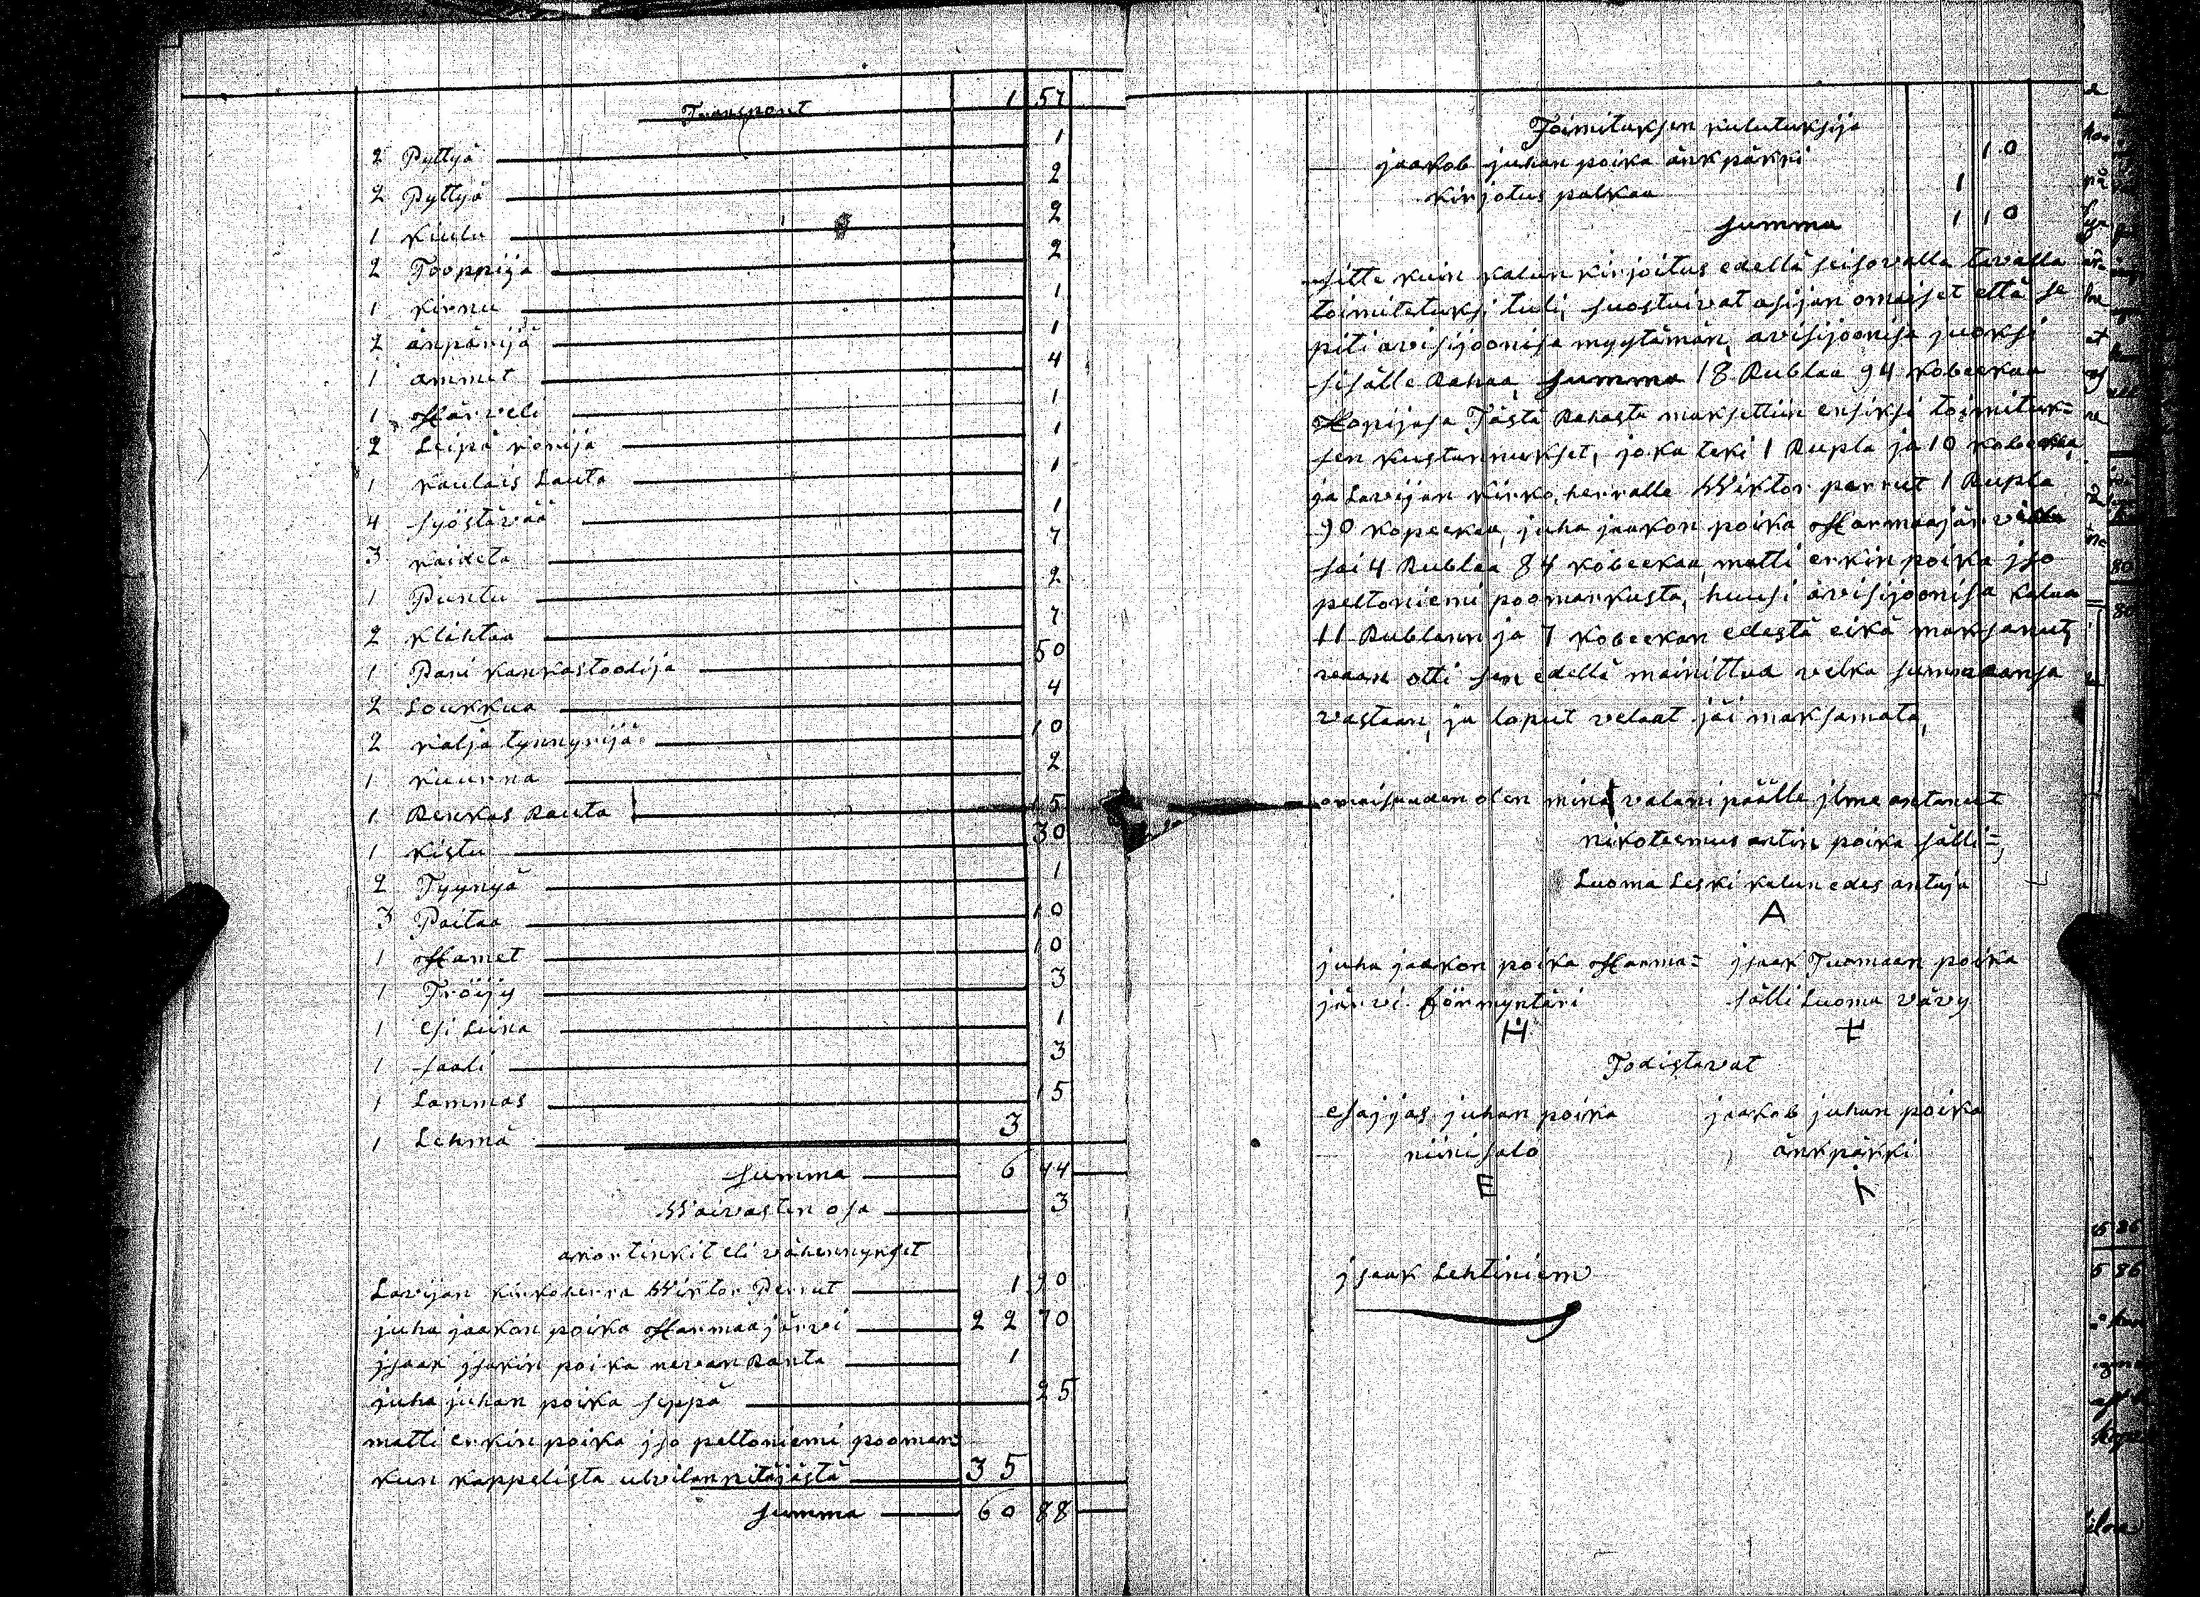 Transport 1 57
2 Pyttyä 1
2 Pyttyä 2
1 Kiulu 2
2 Tooppija 2
1 Kirnu 1
2 änpärijä 1
1 ammet 4
1 Härveli 1
2 Leipä Korija 1
1 Kaulais Lauta 1
4 Syöstävää 1
3 Kaideta 7
1 Puntu 2
2 Klihtaa 7
1 Pari Kankastoolija 50
2 Loukkua 4
2 Kalja tynnyrijä 10
1 Kuurna 2
1 Renkas Rauta 15
1 Kistu 30
2 Tyynyä 1
3 Paitaa 10
1 Hamet 10
1 Tröijy 3
1 esi Liina 1
1 Saali 3
1 Lammas 15
1 Lehmä 3
Summa 6 44
Waivasten osa 3
avortinkit eli vähennykset
Lavijan kirkoherra Wiktor Perrut 1 90
juha jaakon poika Harmaajärvi 22 70
jsaak jsakin poika nevan Ranta 1
juha juhan poika Seppä 25
matti erkin poika jso peltoniemi pooman
kun kappelista ulvilan pitäjästä 35
Summa 60 88
Toimituksen kulutuksija
jaakob juhan poika änkpärki 10
kirjotus palkaa 1
Summa 1 10
Sitte kuin kalun kirjoitus edellä seisovalla tavalla
toimitetuksi tuli, suostuivat asijan omaiset että se
piti avisijoonisa myytämän, avisijoonisa juoksi
sisälle Rahaa, Summa 18 Rublaa 94 kobeekaa
Hopijasa Tästä Rahasta maksettiin ensiksi toimituk=
sen kustannukset, joka teki 1 Rupla ja 10 kobeekaa,
ja Lavijan kirko herralle Wiktor perrut 1 Rupla
90 kopeekaa, juha jaakon poika Harmaajärvi
sai 4 Rublaa 84 kobeekaa, matti erkin poika jso
peltoniemi poomarkusta, huusi avisijoonisa kalua
11 Rublann ja 7 kobeekan edestä eikä maksanut,
vaan otti sen edellä mainittua velka summaansa
vastaan, ja loput velaat jäi maksamata,
omaisuuden olen minä valani päälle jlme antanut
nikoteemus antin poika sälli=
Luoma Leski kalun edes antaja
A
juha jaakon poika Harma= jsaak Tuomaan poika
järvi förmyntäri sälli Luoma vävy
H +
Todistavat
esajjas juhan poika jaakob juhan poika
niinisalo änkpärki
E
jsaak Lehtiniem